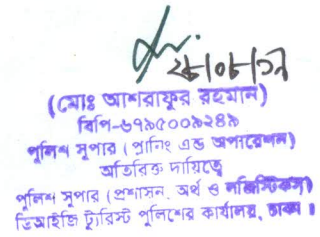 ২৮।০৮।১৭
(মোঃ আশরাফুর রহমান)
বিপি-৬৭৯৫০০৯২৪৯
পুলিশ সুপার (প্লানিং এন্ড অপারেশন)
অতিরিক্ত দায়িত্বে
পুলিশ সুপার (প্রশাসন, অর্থ ও লজিস্টিকস)
ডিআইজি ট্যুরিস্ট পুলিশের কার্যালয়, ঢাকা।